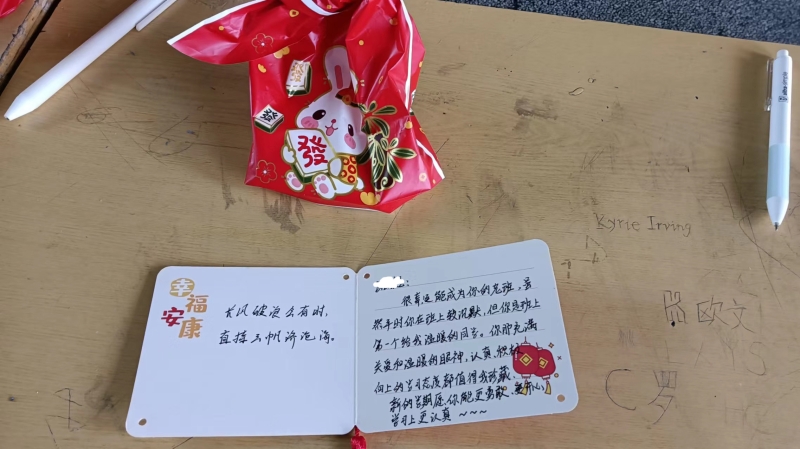 發
發
發
Kyrie Irving
欧文
C罗
幸福
安康
长风破浪会有时,
直挂云帆济沧海。
很幸运能成为你的老班,虽
然平时你在班上较沉默,但你是班上
第一个给我温暖的同学。你那充满
关爱和温暖的眼神,认真、积极
向上的学习态度都值得我珍藏,
新的学期愿你能更勇敢、更开心,
学习上更认真~~~